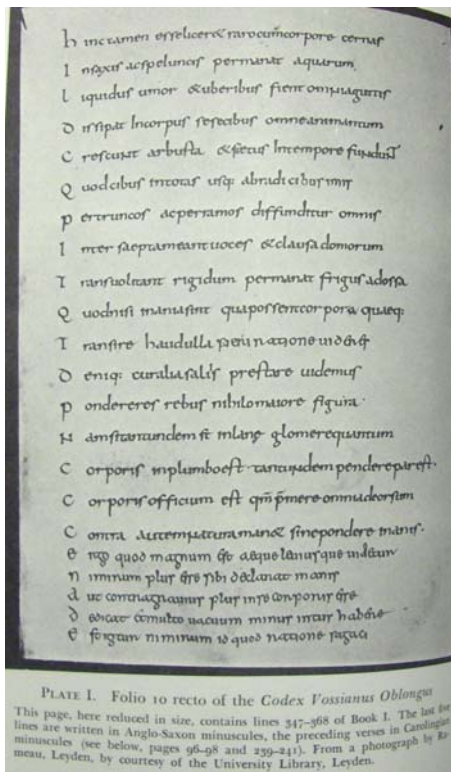 h inctamen esselicet& rarocumcorpore cernas
I nsaxis acspeluncis permanat aquarum
L iquidus umor &uberibus flent omniaguttis
D issipat Incorpus sesecibus omneanimantum
C rescunt arbusta &fetus Intempore fundunt
Q uodcibus intotas usq: abradicibus imis
p ertruncos acperramos diffunditur omnis
I nter saeptameantuoces &clausadomorum
T ransuolitant rigidum permanat frigus adossa
Q uodnisi inaniasint quapossentcorpora quaeq:
T ransire haudulla
D eniq: curaliasaliis prestare uidemus
p ondereres rebus nihilomaiore figura·
N amsitantundem inlane glomerequantum
C orporis inplumboest· tantundem penderepar est·
C orporis officium est qm̄ p̄mere omniadeorsum
C ontra autemnaturamanet sinepondere inanis·
e rgo quod magnum aeque leuiusque
n iminum plus sibi declarat inanis
a ut contra plus inse corporis
d edicat uacuum minus intus habere
e st niminum id quod ratione sagaci
PLATE I. Folio 10 recto of the Codex Vossianus Oblongus
This page, here reduced in size, contains lines 347-368 of Book I. The last
lines are written in Anglo-Saxon minuscules, the preceding verses in Carolingian
minuscules (see below, pages 96-98 and 239-241). From a photograph by
meau, Leyden, by courtesy of the University Library, Leyden.